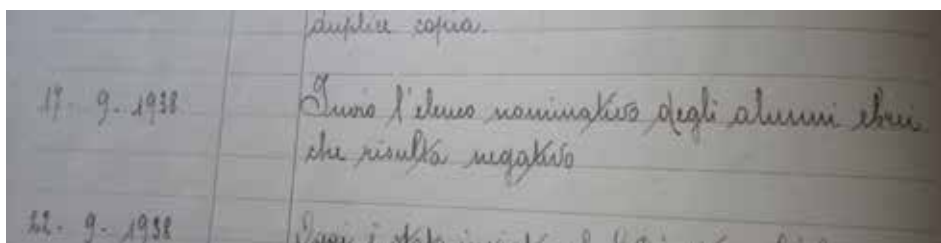 duplice copia.
17 - 9 - 1938 Invio l'elenco nominativo degli alunni ebrei
che risulta negativo
22 - 9 - 1938 Oggi è stato